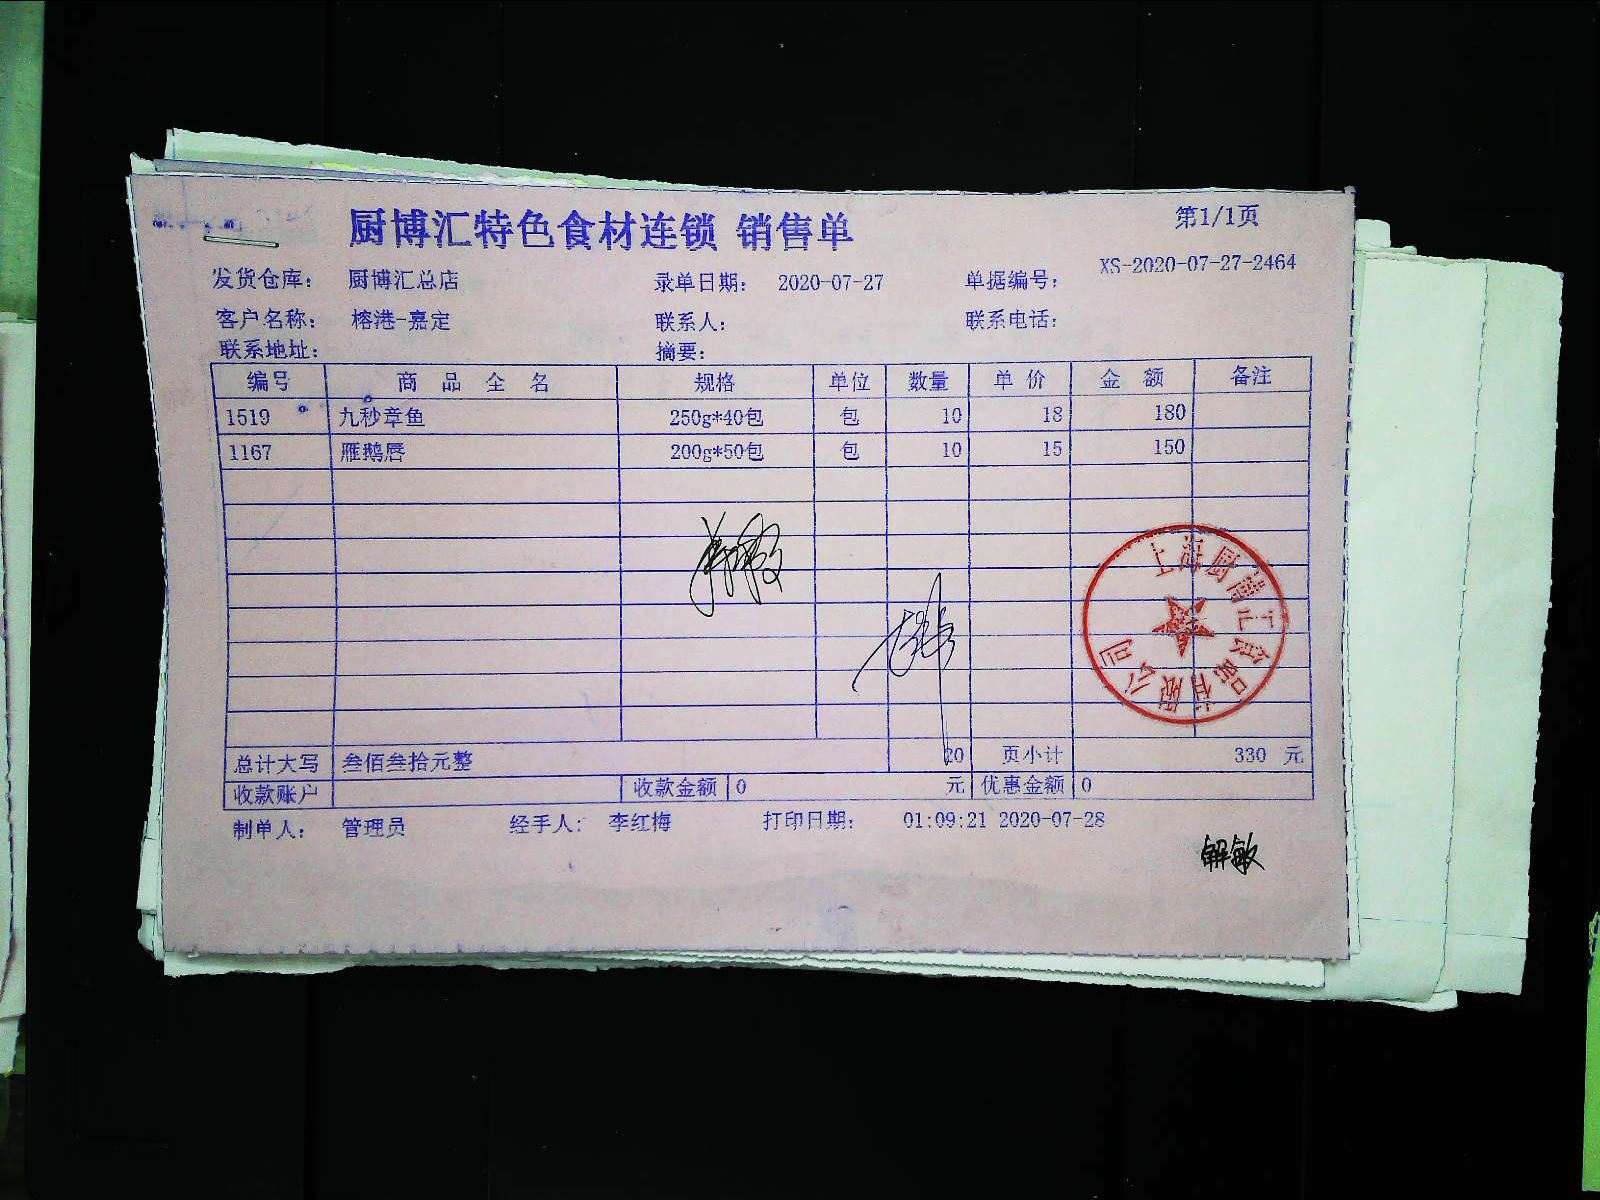 厨博汇特色食材连锁 销售单
第1/1页
发货仓库： 厨博汇总店 录单日期： 2020-07-27 单据编号： XS-2020-07-27-2464
客户名称： 榕港-嘉定 联系人： 联系电话：
联系地址： 摘要：
编号 商 品 全 名 规格 单位 数量 单 价 金 额 备注
1519 九秒章鱼 250g*40包 包 10 18 180
1167 雁鹅唇 200g*50包 包 10 15 150
上海厨博汇食品有限公司
总计大写 叁佰叁拾元整 20 页小计 330 元
收款账户 收款金额 0 元 优惠金额 0
制单人： 管理员 经手人： 李红梅 打印日期： 01:09:21 2020-07-28
解敏